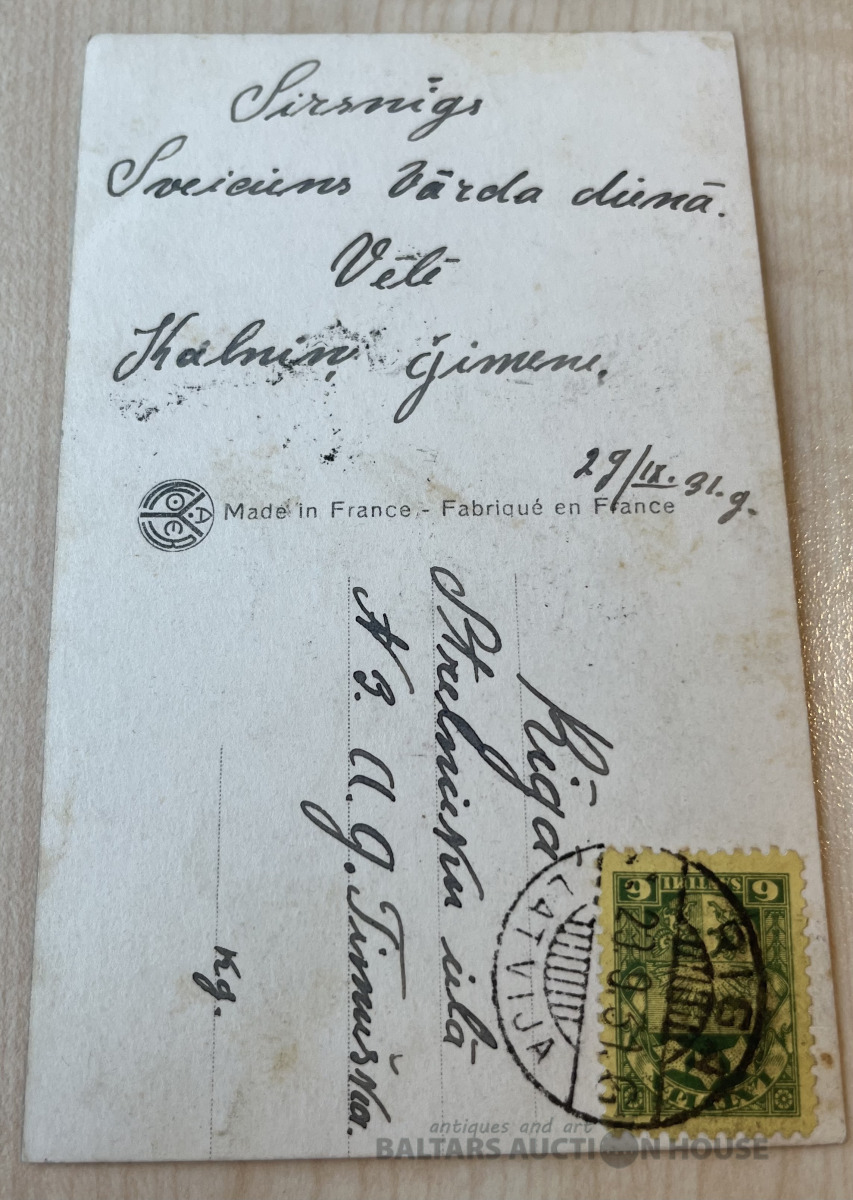 Sirsnīgs
Sveiciens Vārda dienā.
Vēlē
Kalniņ ģimene.
29/IX. 31. g.
Made in France - Fabriqué en France
Rīgā
Strelnieku ielā
N 3. A. g. Timuška.
kg.
LATVIJA
RIGA
6 SANTIMI 6
LATVIJA
antiques and art
BALTARS AUCTION HOUSE